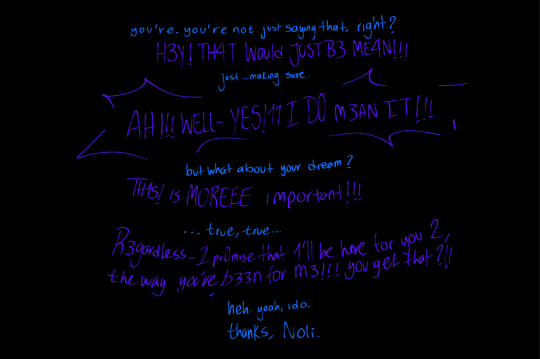 you're. you're not just saying that, right?
H3Y! TH4T Would JUST B3 ME4N!!!
just ...making sure.
AH!!! WELL- YES!11 I DO M3AN IT!!!
but what about your dream?
TH1S! is MOREEE important!!!
... true, true...
R3gardless- I pr0mise that 1'll be here for you 2,
the way you've b33n for m3!!! you get that?!!
heh. yeah, i do.
thanks, Noli.